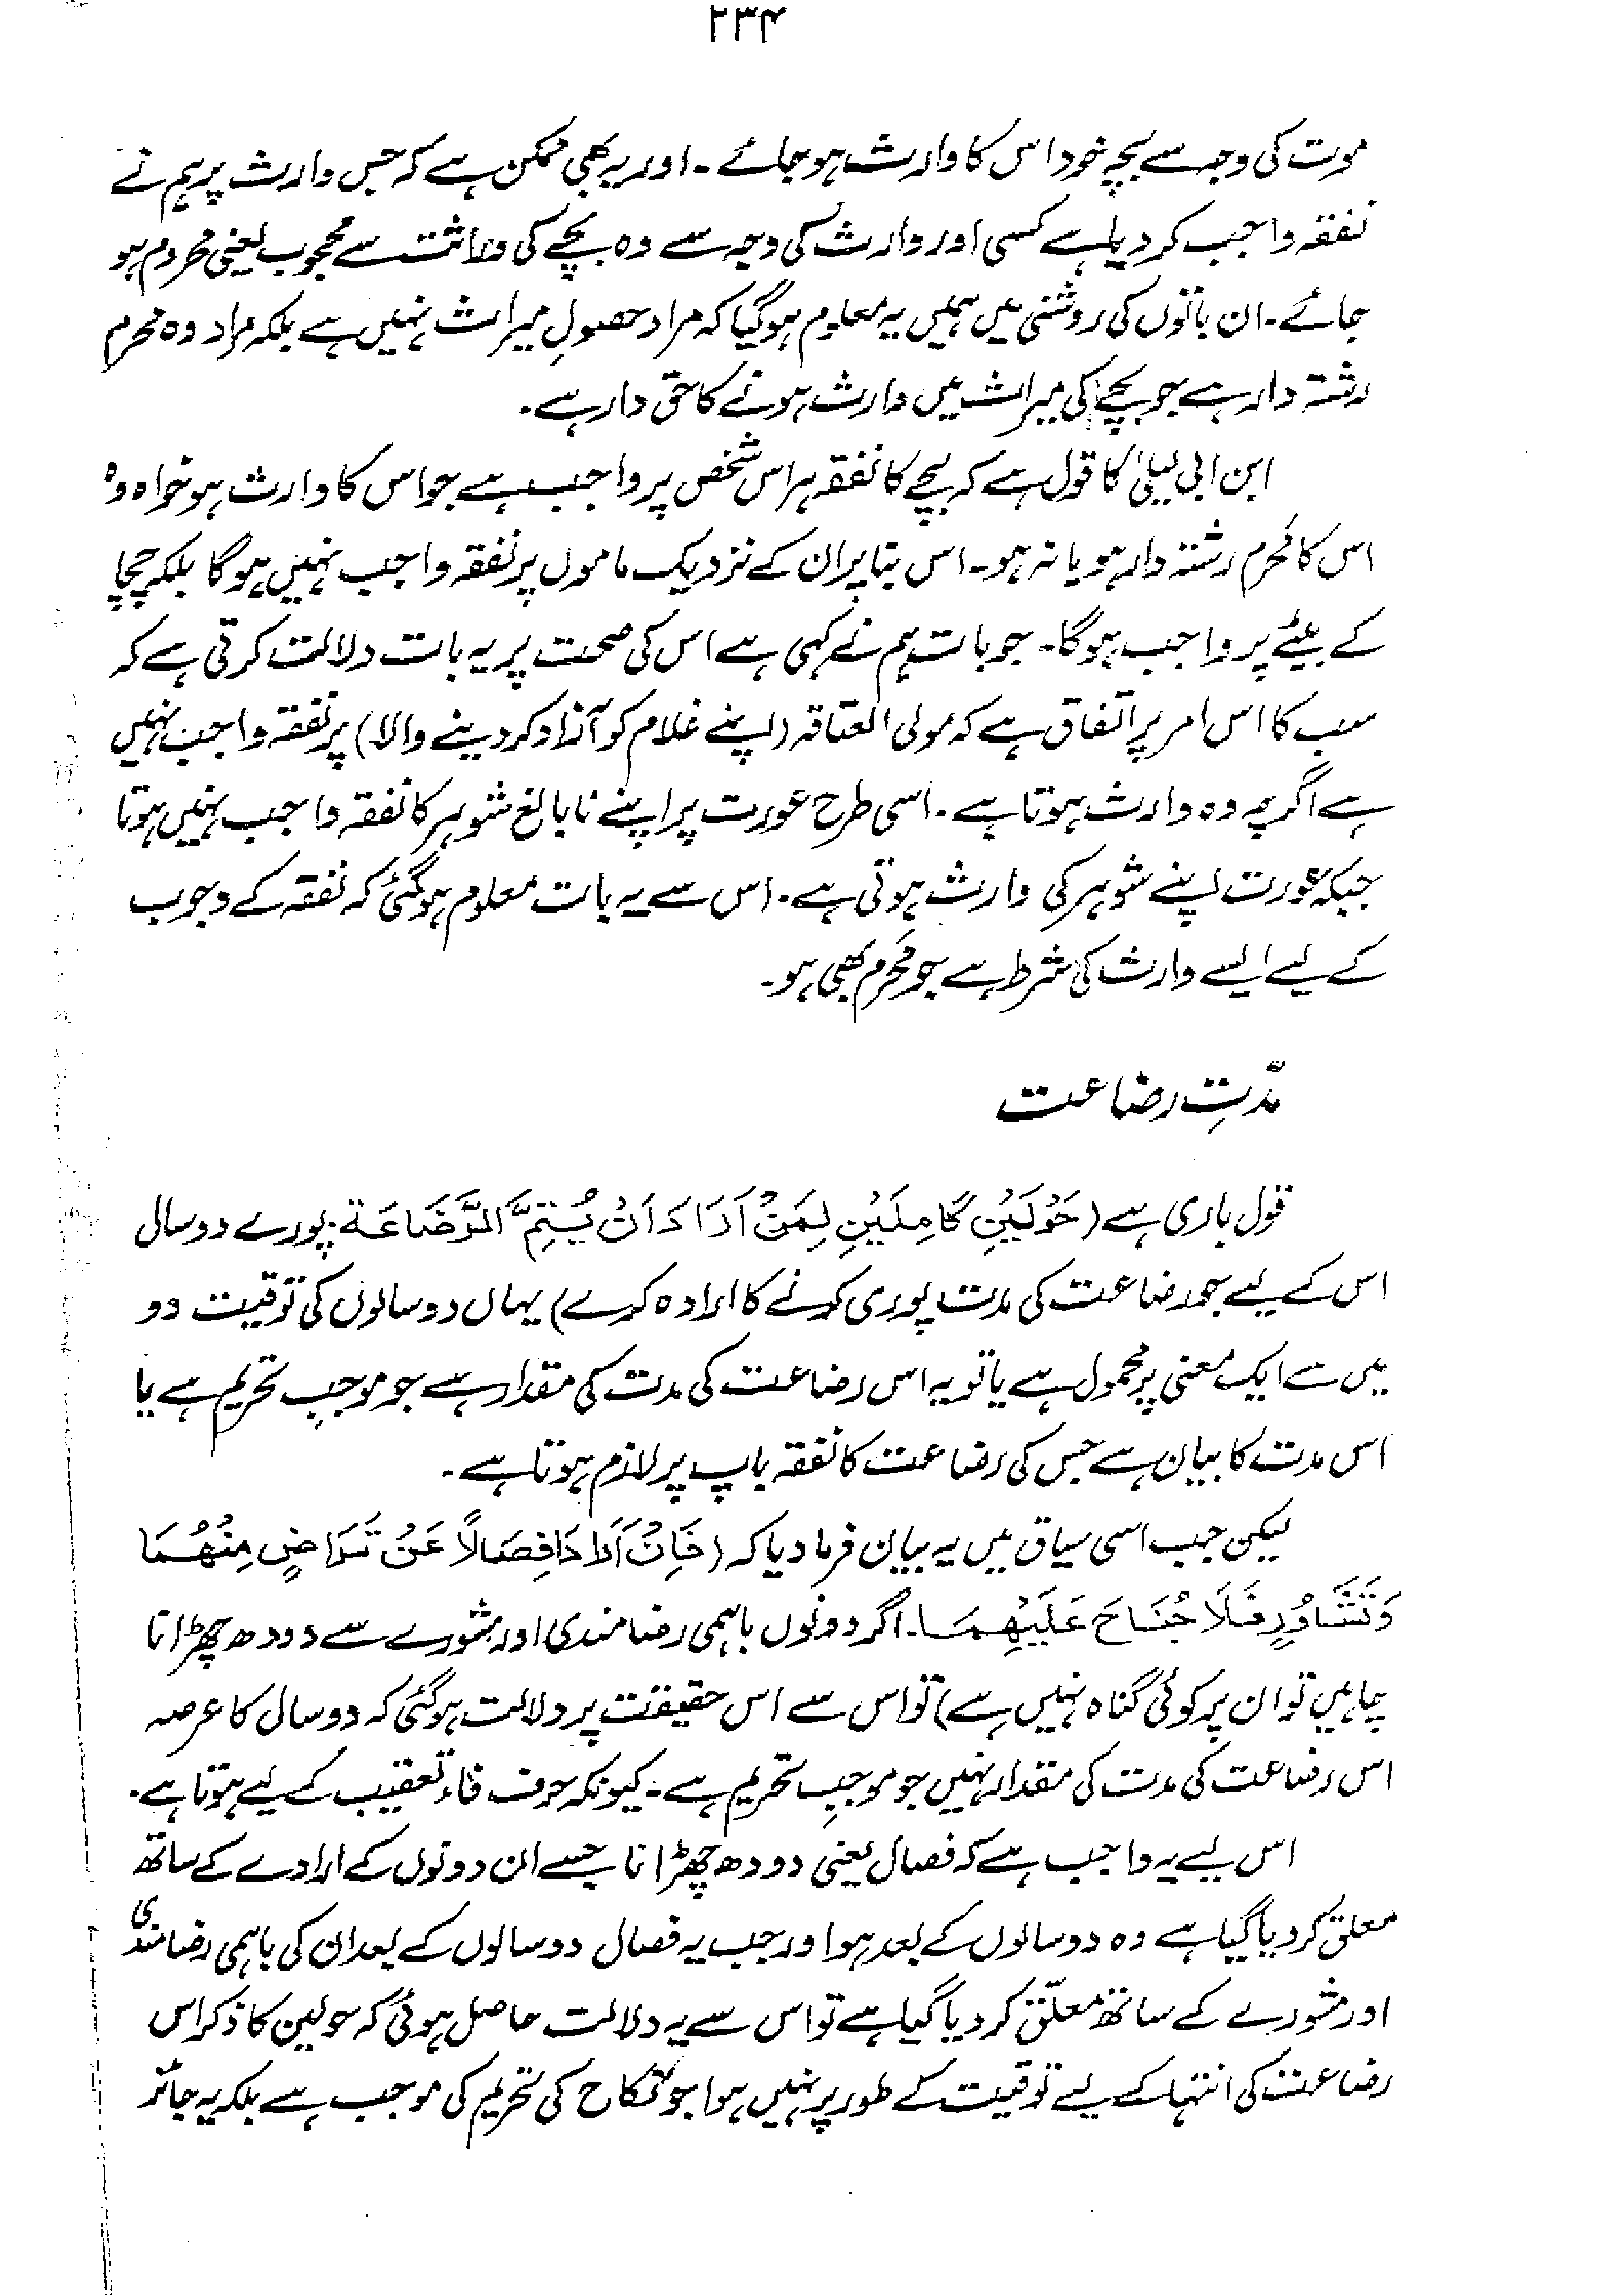 ۲۳۴
موت کی وجہ سے بچہ خود اس کا وارث ہو جائے۔ اور یہ بھی ممکن ہے کہ جس وارث پر ہم نے
نفقہ واجب کر دیا ہے کسی اور وارث کی وجہ سے وہ بچے کی وراثت سے محجوب یعنی محروم ہو
جائے۔ ان باتوں کی روشنی میں ہمیں یہ معلوم ہو گیا کہ مراد حصولِ میراث نہیں ہے بلکہ مراد وہ محرم
رشتہ دار ہے جو بچے کی میراث میں وارث ہونے کا حق دار ہے۔
ابن ابی لیلیٰ کا قول ہے کہ بچے کا نفقہ ہر اس شخص پر واجب ہے جو اس کا وارث ہو خواہ وہ
اس کا مَحرم رشتہ دار ہو یا نہ ہو۔ اس بنا پر ان کے نزدیک ماموں پر نفقہ واجب نہیں ہو گا بلکہ چچا
کے بیٹے پر واجب ہو گا۔ جو بات ہم نے کہی ہے اس کی صحت پر یہ بات دلالت کرتی ہے کہ
سب کا اس امر پر اتفاق ہے کہ مولی العتاقہ (اپنے غلام کو آزاد کر دینے والا) پر نفقہ واجب نہیں
ہے اگرچہ وہ وارث ہوتا ہے۔ اسی طرح عورت پر اپنے نابالغ شوہر کا نفقہ واجب نہیں ہوتا
جبکہ عورت اپنے شوہر کی وارث ہوتی ہے۔ اس سے یہ بات معلوم ہو گئی کہ نفقہ کے وجوب
کے لیے ایسے وارث کی شرط ہے جو مَحرم بھی ہو۔
مدّتِ رضاعت
قول باری ہے (حَوْلَیْنِ کَامِلَیْنِ لِمَنْ اَرَادَ اَنْ یُّتِمَّ الرَّضَاعَۃَ پورے دو سال
اس کے لیے جو رضاعت کی مدت پوری کرنے کا ارادہ کرے) یہاں دو سالوں کی توقیت دو
میں سے ایک معنی پر محمول ہے یا تو یہ اس رضاعت کی مدت کی مقدار ہے جو موجبِ تحریم ہے یا
اس مدت کا بیان ہے جس کی رضاعت کا نفقہ باپ پر لازم ہوتا ہے۔
لیکن جب اسی سیاق میں یہ بیان فرما دیا کہ (فَاِنْ اَرَادَا فِصَالاً عَنْ تَرَاضٍ مِنْھُمَا
وَتَشَاوُرٍ فَلَا جُنَاحَ عَلَیْھِمَا۔ اگر دونوں باہمی رضامندی اور مشورے سے دودھ چھڑانا
چاہیں تو ان پر کوئی گناہ نہیں ہے) تو اس سے اس حقیقت پر دلالت ہو گئی کہ دو سال کا عرصہ
اس رضاعت کی مدت کی مقدار نہیں جو موجبِ تحریم ہے۔ کیونکہ حرف فاء تعقیب کے لیے ہوتا ہے۔
اس لیے یہ واجب ہے کہ فصال یعنی دودھ چھڑانا جسے ان دونوں کے ارادے کے ساتھ
معلق کر دیا گیا ہے وہ دو سالوں کے بعد ہو اور جب یہ فصال دو سالوں کے بعد ان کی باہمی رضامندی
اور مشورے کے ساتھ معلّق کر دیا گیا ہے تو اس سے یہ دلالت حاصل ہوئی کہ حولین کا ذکر اس
رضاعت کی انتہا کے لیے توقیت کے طور پر نہیں ہوا جو نکاح کی تحریم کی موجب ہے بلکہ یہ جائز